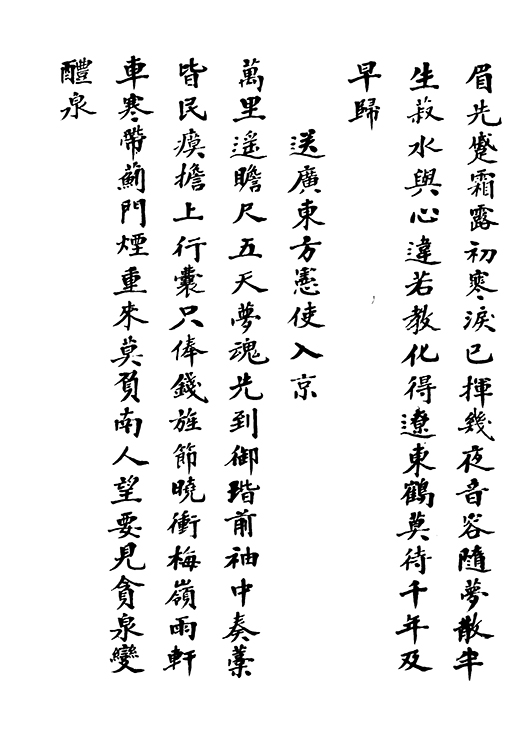 眉先蹙霜露初寒淚已揮幾夜音容隨夢散半
生菽水與心違若教化得遼東鶴莫待千年及
早歸
送廣東方憲使入京
萬里遥瞻尺五天夢魂先到御堦前袖中奏藁
皆民瘼擔上行囊只俸錢旌節曉衝梅嶺雨軒
車寒帶薊門煙重來莫負南人望要見貪泉變
醴泉